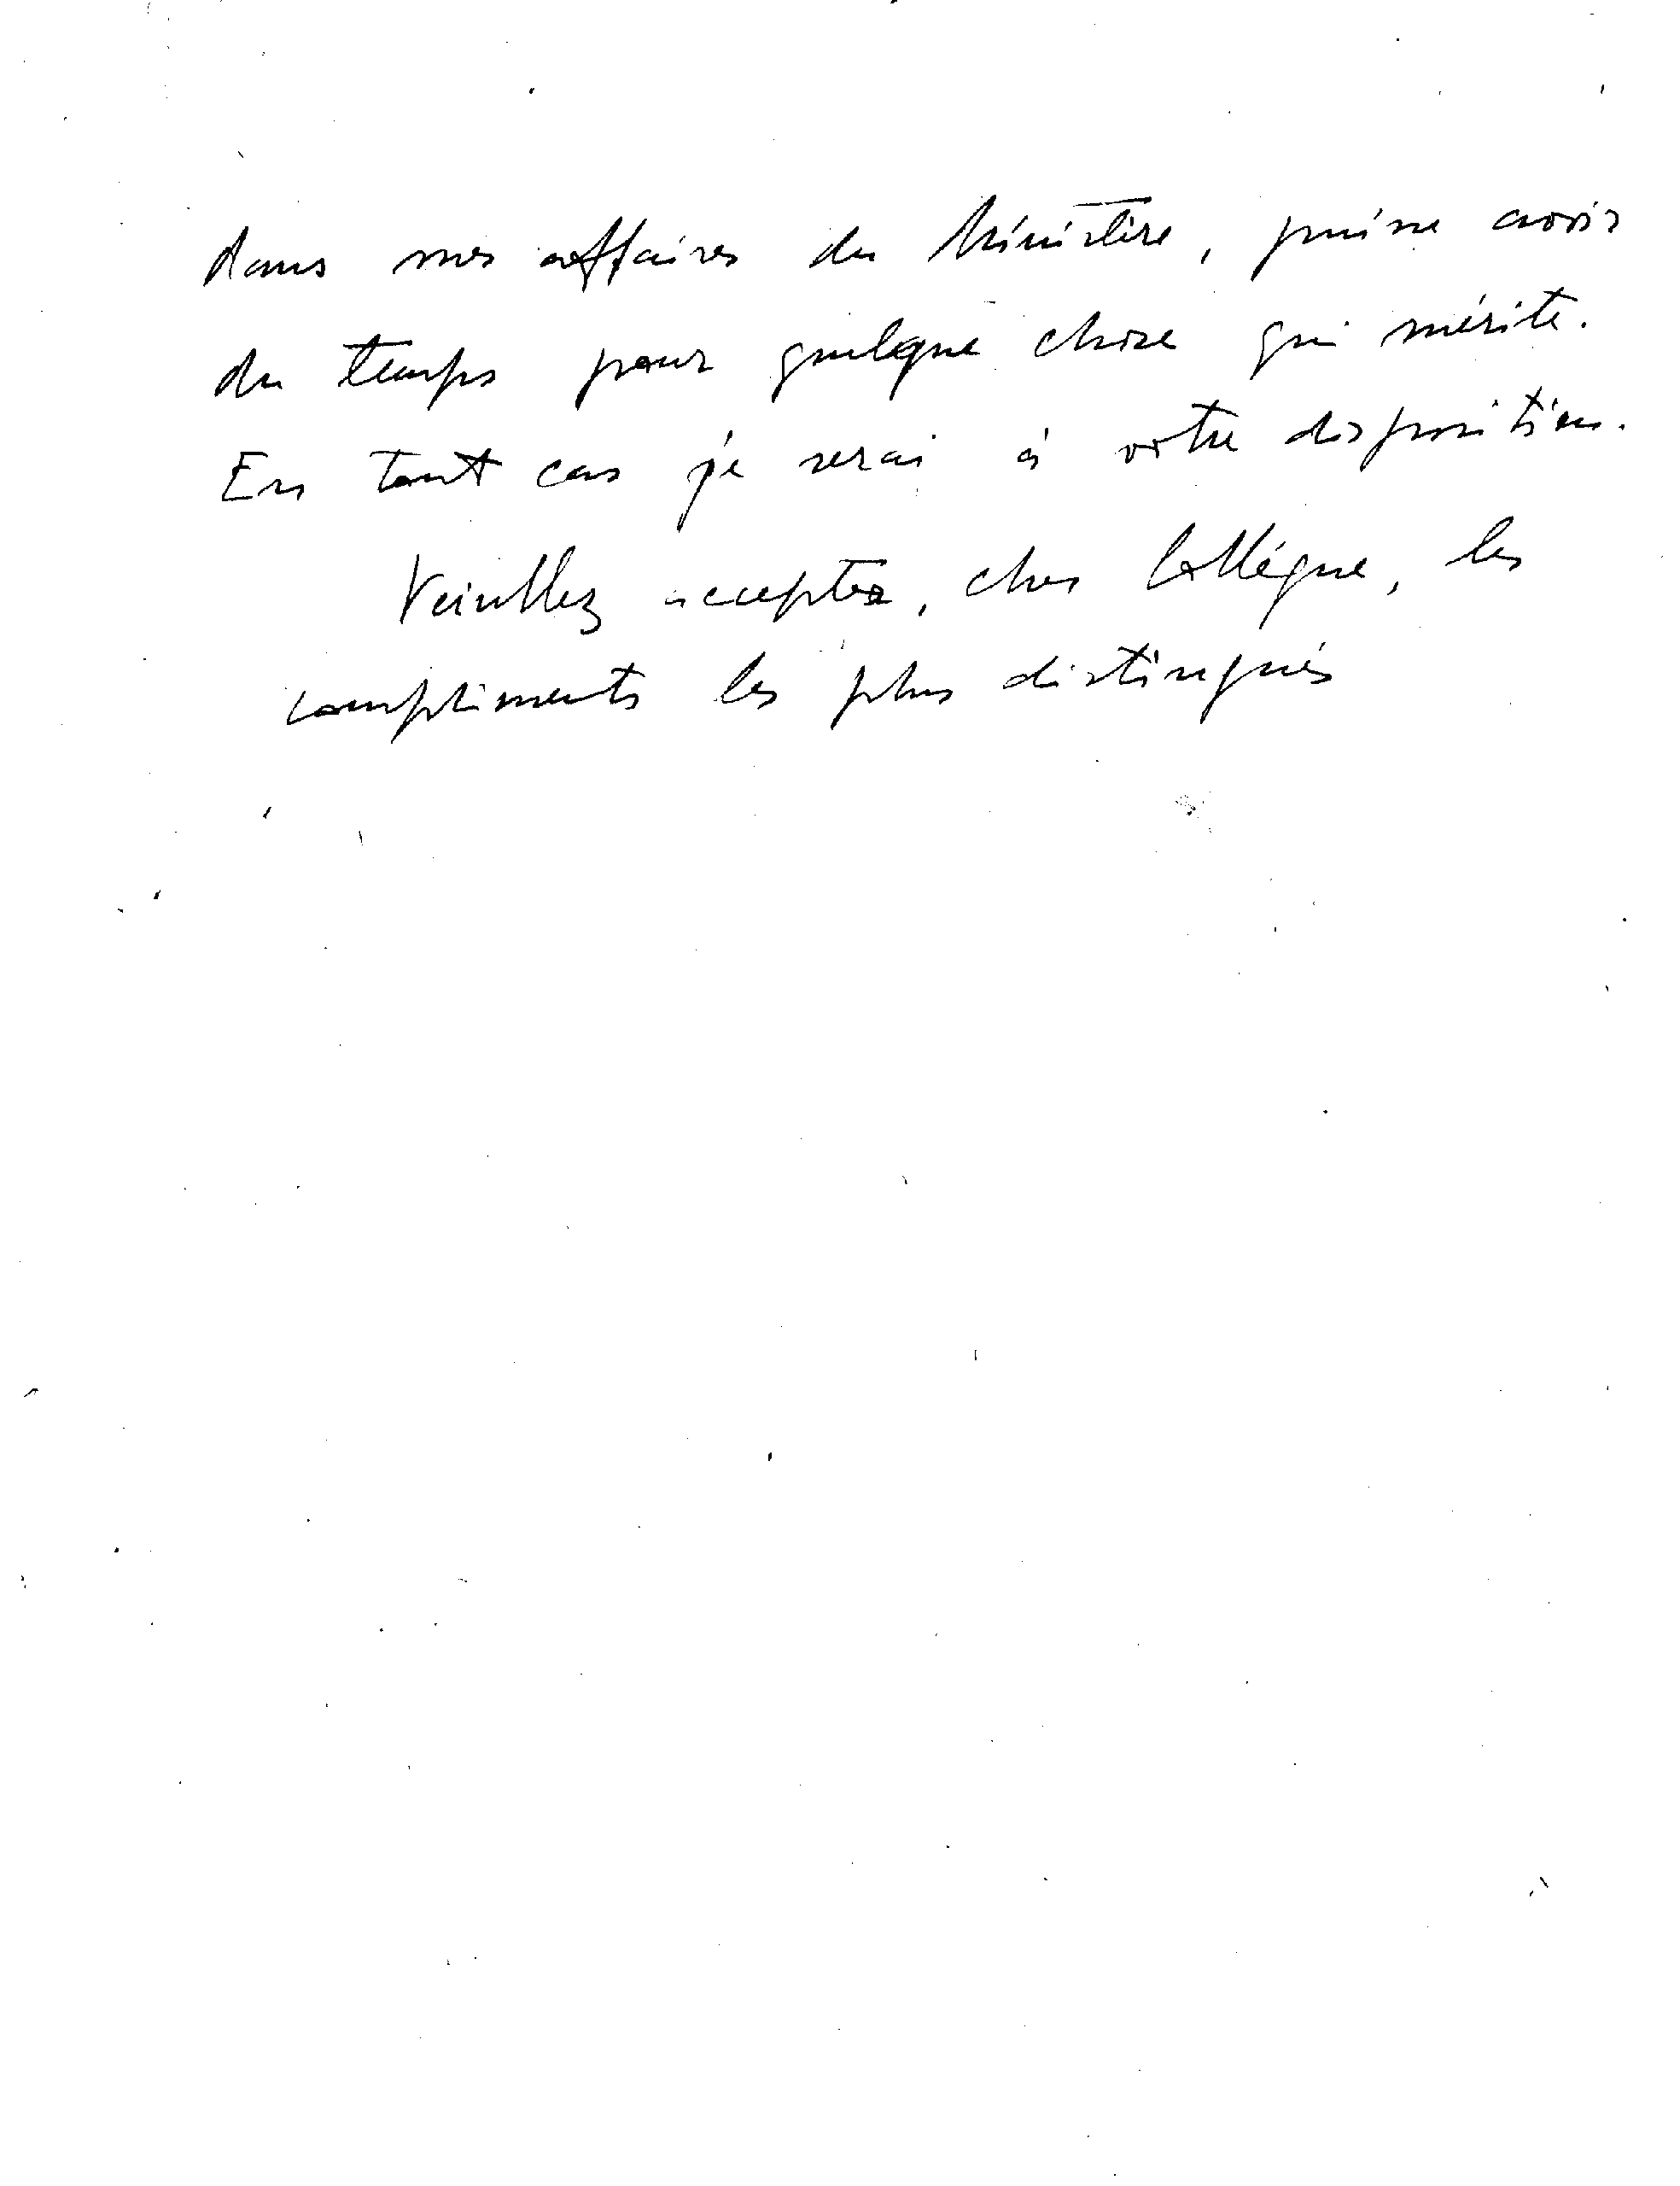 dans mes affaires du Ministère, puisse avoir
du temps pour quelque chose qui mérite.
En tout cas je serai à votre disposition.
Veuillez accepter, cher Collégue, les
compliments les plus distingués